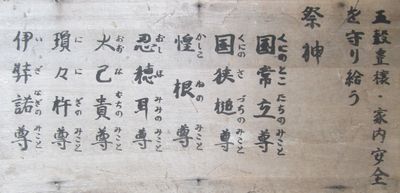 五穀豊穣 家内安全
を守り給う
祭神
国常立尊
くにのとこたちのみこと
国狭槌尊
くにのさづちのみこと
惶根尊
かしこねのみこと
忍穂耳尊
おしほみみのみこと
大己貴尊
おおなむちのみこと
瓊々杵尊
ににぎのみこと
伊弉諾尊
いざなぎのみこと